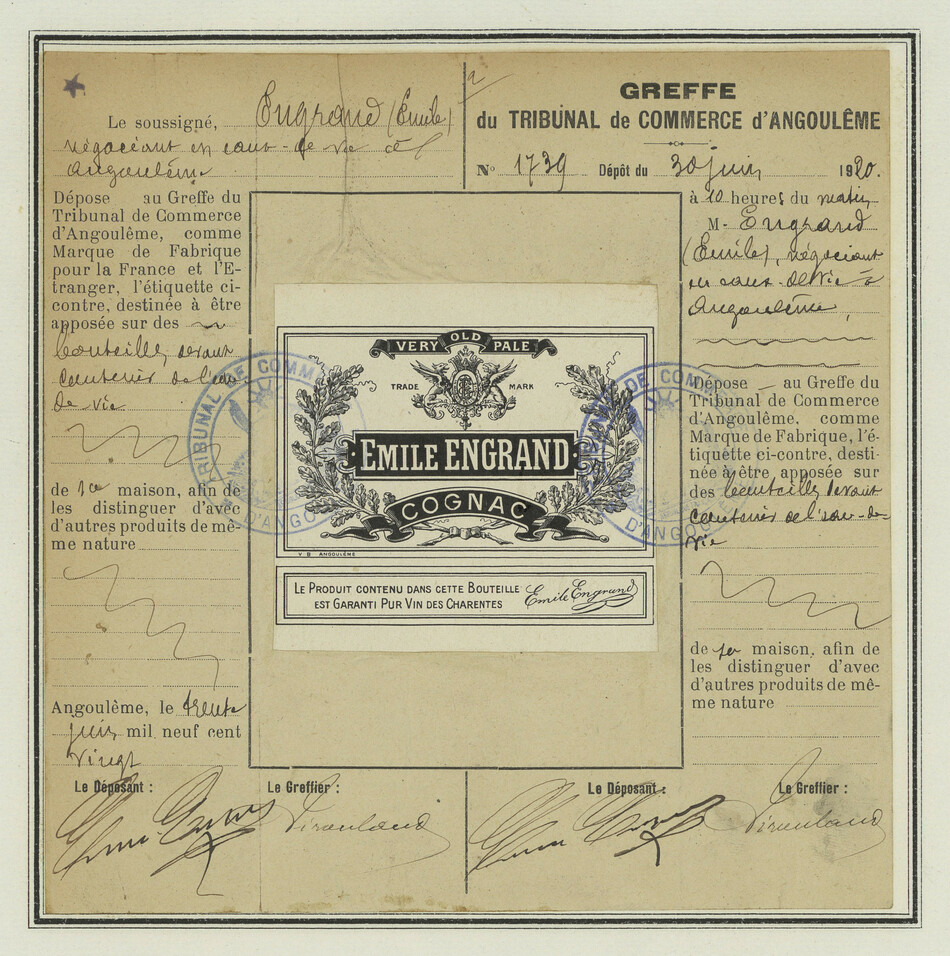 Le soussigné, Engrand (Emile)
négociant en eaux-de-vie à
Angoulême
Dépose au Greffe du
Tribunal de Commerce
d'Angoulême, comme
Marque de Fabrique
pour la France et l'E-
tranger, l'étiquette ci-
contre, destinée à être
apposée sur des
bouteilles devant
contenir de l'eau
de vie
de sa maison, afin de
les distinguer d'avec
d'autres produits de mê-
me nature
Angoulême, le trente
juin mil neuf cent
vingt
Le Déposant :
Le Greffier :
GREFFE
du TRIBUNAL de COMMERCE d'ANGOULÊME
N° 1739 Dépôt du 30 juin 1920.
à 10 heures du matin
M. Engrand
(Emile), négociant
en eaux-de-vie à
Angoulême,
Dépose au Greffe du
Tribunal de Commerce
d'Angoulême, comme
Marque de Fabrique, l'é-
tiquette ci-contre, desti-
née à être apposée sur
des bouteilles devant
contenir de l'eau-de-
vie
de sa maison, afin de
les distinguer d'avec
d'autres produits de mê-
me nature
Le Déposant :
Le Greffier :
VERY OLD PALE
TRADE MARK
EMILE ENGRAND
COGNAC
V B ANGOULÊME
LE PRODUIT CONTENU DANS CETTE BOUTEILLE
EST GARANTI PUR VIN DES CHARENTES
Emile Engrand
TRIBUNAL DE COMM
D'ANGO
DE COM
D'ANGO